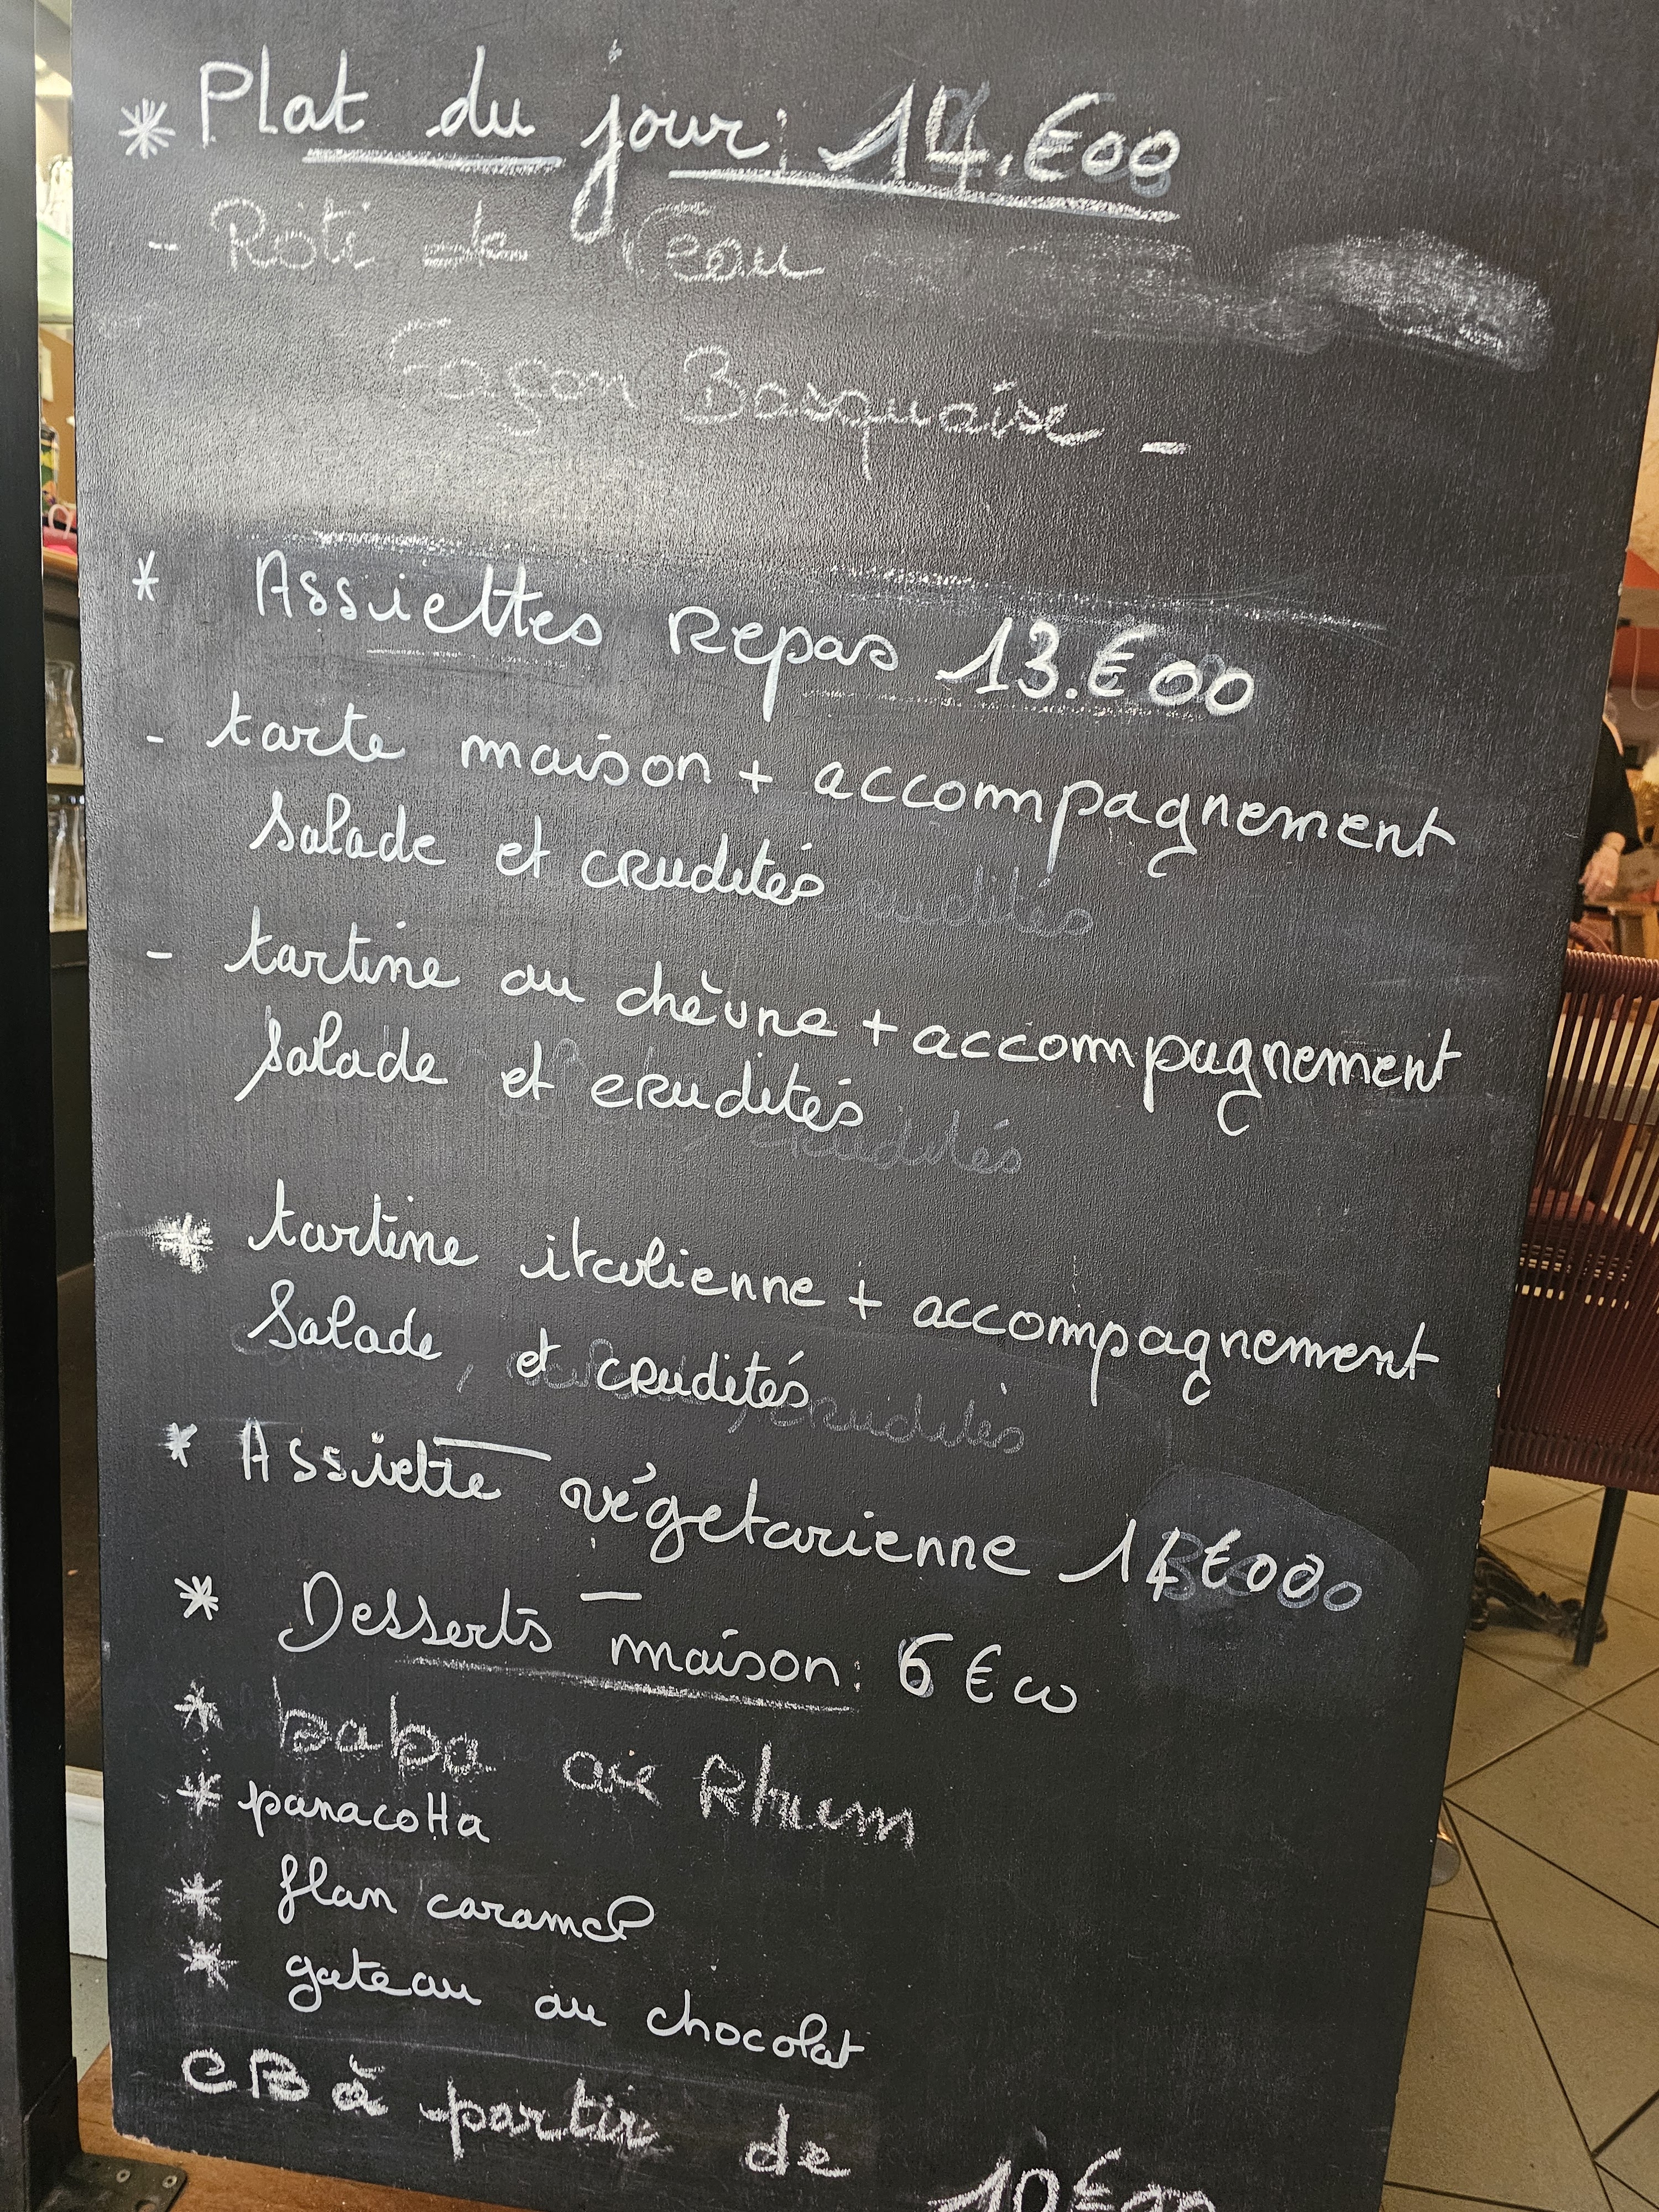 * Plat du jour: 14.€00
- Rôti de Veau
Façon Basquaise -
* Assiettes Repas 13.€00
- tarte maison + accompagnement
salade et crudités
- tartine au chèvre + accompagnement
salade et crudités
* tartine italienne + accompagnement
Salade et crudités
* Assiette végetarienne 14€00
* Desserts maison: 6€00
* baba au Rhum
* panacotta
* flan caramel
* gateau au chocolat
CB à partir de 10€00